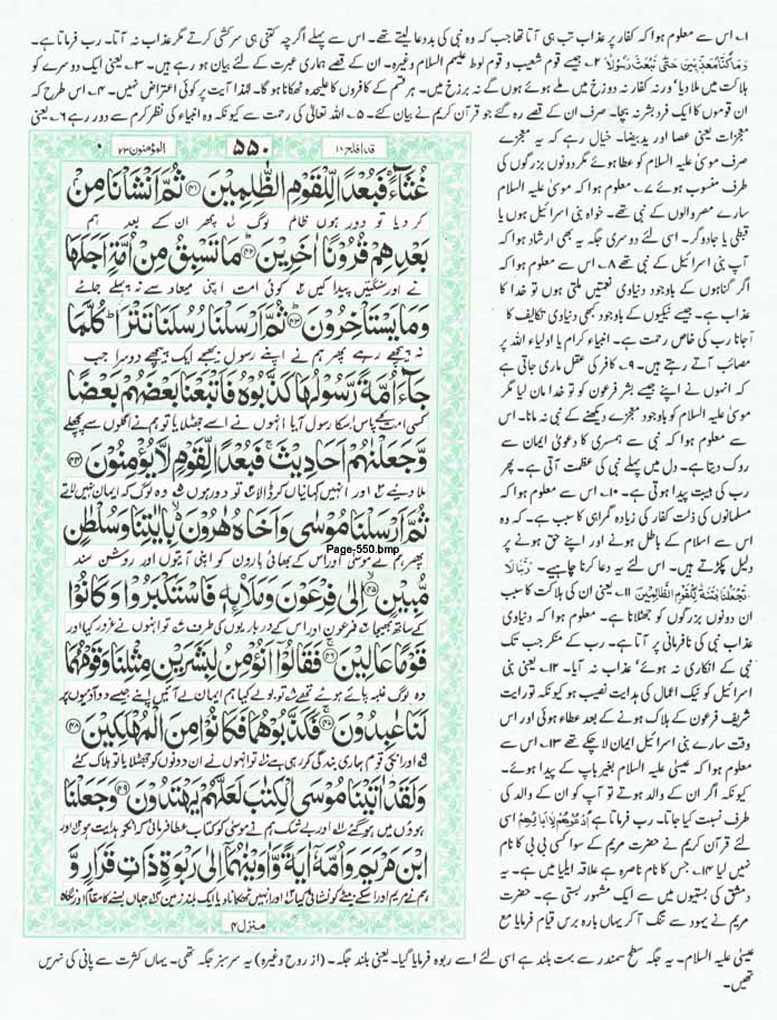 ۱۔ اس سے معلوم ہوا کہ کفار پر عذاب تب ہی آتا تھا جب کہ وہ نبی کی بددعا لیتے تھے۔ اس سے پہلے اگرچہ کتنی ہی سرکشی کرتے مگر عذاب نہ آتا۔ رب فرماتا ہے۔
وَمَا كُنَّا مُعَذِّبِيْنَ حَتّٰى نَبْعَثَ رَسُوْلًا ۲۔ جیسے قوم شعیب و قوم لوط علیہم السلام وغیرہ۔ ان کے قصے ہماری عبرت کے لئے بیان ہو رہے ہیں۔ ۳۔ یعنی ایک دوسرے کو
ہلاکت میں ملا دیا' ورنہ کفار نہ دوزخ میں ملے ہوئے ہوں گے نہ برزخ میں۔ ہر قسم کے کافروں کا علیحدہ ٹھکانا ہو گا۔ لہٰذا آیت پر کوئی اعتراض نہیں۔ ۴۔ اس طرح کہ
ان قوموں کا ایک فرد بشر نہ بچا۔ صرف ان کے قصے رہ گئے جو قرآن کریم نے بیان کئے۔ ۵۔ اللہ تعالٰی کی رحمت سے کیونکہ وہ انبیاء کی نظر کرم سے دور رہے ۶۔ یعنی
معجزات یعنی عصا اور یدبیضا۔ خیال رہے کہ یہ معجزے
صرف موسیٰ علیہ السلام کو عطا ہوئے مگر دونوں بزرگوں کی
طرف منسوب ہوئے ۷۔ معلوم ہوا کہ موسیٰ علیہ السلام
سارے مصر والوں کے نبی تھے۔ خواہ بنی اسرائیل ہوں یا
قبطی یا جادوگر۔ اسی لئے دوسری جگہ یہ بھی ارشاد ہوا کہ
آپ بنی اسرائیل کے نبی تھے ۸۔ اس سے معلوم ہوا کہ
اگر گناہوں کے باوجود دنیاوی نعمتیں ملتی ہوں تو خدا کا
عذاب ہے۔ جیسے نیکیوں کے باوجود کبھی دنیاوی تکالیف کا
آجانا رب کی خاص رحمت ہے۔ انبیاء کرام یا اولیاء اللہ پر
مصائب آتے رہتے ہیں۔ ۹۔ کافر کی عقل ماری جاتی ہے
کہ انہوں نے اپنے جیسے بشر فرعون کو تو خدا مان لیا مگر
موسیٰ علیہ السلام کو باوجود معجزے دیکھنے کے نبی نہ مانا۔ اس
سے معلوم ہوا کہ نبی سے ہمسری کا دعویٰ ایمان سے
روک دیتا ہے۔ دل میں پہلے نبی کی عظمت آتی ہے۔ پھر
رب کی ہیبت پیدا ہوتی ہے۔ ۱۰۔ اس سے معلوم ہوا کہ
مسلمانوں کی ذلت کفار کی زیادہ گمراہی کا سبب ہے۔ کہ وہ
اس سے اسلام کے باطل ہونے اور اپنے حق ہونے پر
دلیل پکڑتے ہیں۔ اس لئے یہ دعا کرنا چاہیے۔ رَبَّنَا لَا
تَجْعَلْنَا فِتْنَةً لِّلْقَوْمِ الظَّالِمِيْنَ ۱۱۔ یعنی ان کی ہلاکت کا سبب
ان دونوں بزرگوں کو جھٹلانا ہے۔ معلوم ہوا کہ دنیاوی
عذاب نبی کی نافرمانی پر آتا ہے۔ رب کے منکر جب تک
نبی کے انکاری نہ ہوئے' عذاب نہ آیا۔ ۱۲۔ یعنی بنی
اسرائیل کو نیک اعمال کی ہدایت نصیب ہو کیونکہ توریت
شریف فرعون کے ہلاک ہونے کے بعد عطاء ہوئی اور اس
وقت سارے بنی اسرائیل ایمان لا چکے تھے ۱۳۔ اس سے
معلوم ہوا کہ عیسیٰ علیہ السلام بغیر باپ کے پیدا ہوئے۔
کیونکہ اگر ان کے والد ہوتے تو آپ کو ان کے والد کی
طرف نسبت کیا جاتا۔ رب فرماتا ہے اُدْعُوْهُمْ لِاٰبَائِهِمْ اسی
لئے قرآن کریم نے حضرت مریم کے سوا کسی بی بی کا نام
نہیں لیا ۱۴۔ جس کا نام ناصرہ ہے علاقہ ایلیا میں ہے۔ یہ
دمشق کی بستیوں میں سے ایک مشہور بستی ہے۔ حضرت
مریم نے یہود سے تنگ آ کر یہاں بارہ برس قیام فرمایا مع
عیسیٰ علیہ السلام۔ یہ جگہ سطح سمندر سے بہت بلند ہے اسی لئے اسے ربوہ فرمایا گیا۔ یعنی بلند جگہ۔ (از روح وغیرہ) یہ سرسبز جگہ تھی۔ یہاں کثرت سے پانی کی نہریں
تھیں۔
قد افلح ۱۸ ۵۵۰ المؤمنون ۲۳
غُثَآءً ۚ فَبُعْدًا لِّلْقَوْمِ الظّٰلِمِيْنَ ﴿۴۱﴾ ثُمَّ اَنْشَاْنَا مِنْۢ
کر دیا تو دور ہوں ظالم لوگ پھر ان کے بعد ہم
بَعْدِهِمْ قُرُوْنًا اٰخَرِيْنَ ﴿۴۲﴾ مَا تَسْبِقُ مِنْ اُمَّةٍ اَجَلَهَا
نے اور سنگتیں پیدا کیں کوئی امت اپنی میعاد سے نہ پہلے جائے
وَمَا يَسْتَاْخِرُوْنَ ﴿۴۳﴾ ثُمَّ اَرْسَلْنَا رُسُلَنَا تَتْرَا ؕ كُلَّمَا
نہ پیچھے رہے پھر ہم نے اپنے رسول بھیجے ایک پیچھے دوسرا جب
جَآءَ اُمَّةً رَّسُوْلُهَا كَذَّبُوْهُ فَاَتْبَعْنَا بَعْضَهُمْ بَعْضًا
کسی امت کے پاس اس کا رسول آیا انہوں نے اسے جھٹلایا تو ہم نے اگلوں سے پچھلے
وَّجَعَلْنٰهُمْ اَحَادِيْثَ ۚ فَبُعْدًا لِّقَوْمٍ لَّا يُؤْمِنُوْنَ ﴿۴۴﴾
ملا دیئے اور انہیں کہانیاں کر ڈالا تو دور ہوں وہ لوگ کہ ایمان نہیں لاتے
ثُمَّ اَرْسَلْنَا مُوْسٰى وَاَخَاهُ هٰرُوْنَ ۙ بِاٰيٰتِنَا وَسُلْطٰنٍ
Page-550.bmp
پھر ہم نے موسیٰ اور اس کے بھائی ہارون کو اپنی آیتوں اور روشن سند
مُّبِيْنٍ ﴿۴۵﴾ اِلٰى فِرْعَوْنَ وَمَلَا۟ئِهٖ فَاسْتَكْبَرُوْا وَكَانُوْا
کے ساتھ بھیجا فرعون اور اس کے درباریوں کی طرف تو انہوں نے غرور کیا اور
قَوْمًا عَالِيْنَ ﴿۴۶﴾ فَقَالُوْٓا اَنُؤْمِنُ لِبَشَرَيْنِ مِثْلِنَا وَقَوْمُهُمَا
وہ لوگ غلبہ پائے ہوئے تھے تو بولے کیا ہم ایمان لے آئیں اپنے جیسے دو آدمیوں پر
لَنَا عٰبِدُوْنَ ﴿۴۷﴾ فَكَذَّبُوْهُمَا فَكَانُوْا مِنَ الْمُهْلَكِيْنَ ﴿۴۸﴾
اور ان کی قوم ہماری بندگی کر رہی ہے تو انہوں نے ان دونوں کو جھٹلایا تو ہلاک کئے
وَلَقَدْ اٰتَيْنَا مُوْسَى الْكِتٰبَ لَعَلَّهُمْ يَهْتَدُوْنَ ﴿۴۹﴾ وَجَعَلْنَا
ہوؤں میں ہو گئے اور بے شک ہم نے موسیٰ کو کتاب عطا فرمائی کہ ان کو ہدایت ہو اور
ابْنَ مَرْيَمَ وَاُمَّهٗٓ اٰيَةً وَّاٰوَيْنٰهُمَآ اِلٰى رَبْوَةٍ ذَاتِ قَرَارٍ وَّ
ہم نے مریم اور اس کے بیٹے کو نشانی کیا اور انہیں ٹھکانا دیا ایک بلند زمین جہاں بسنے کا مقام اور نگاہ
منزل ۴